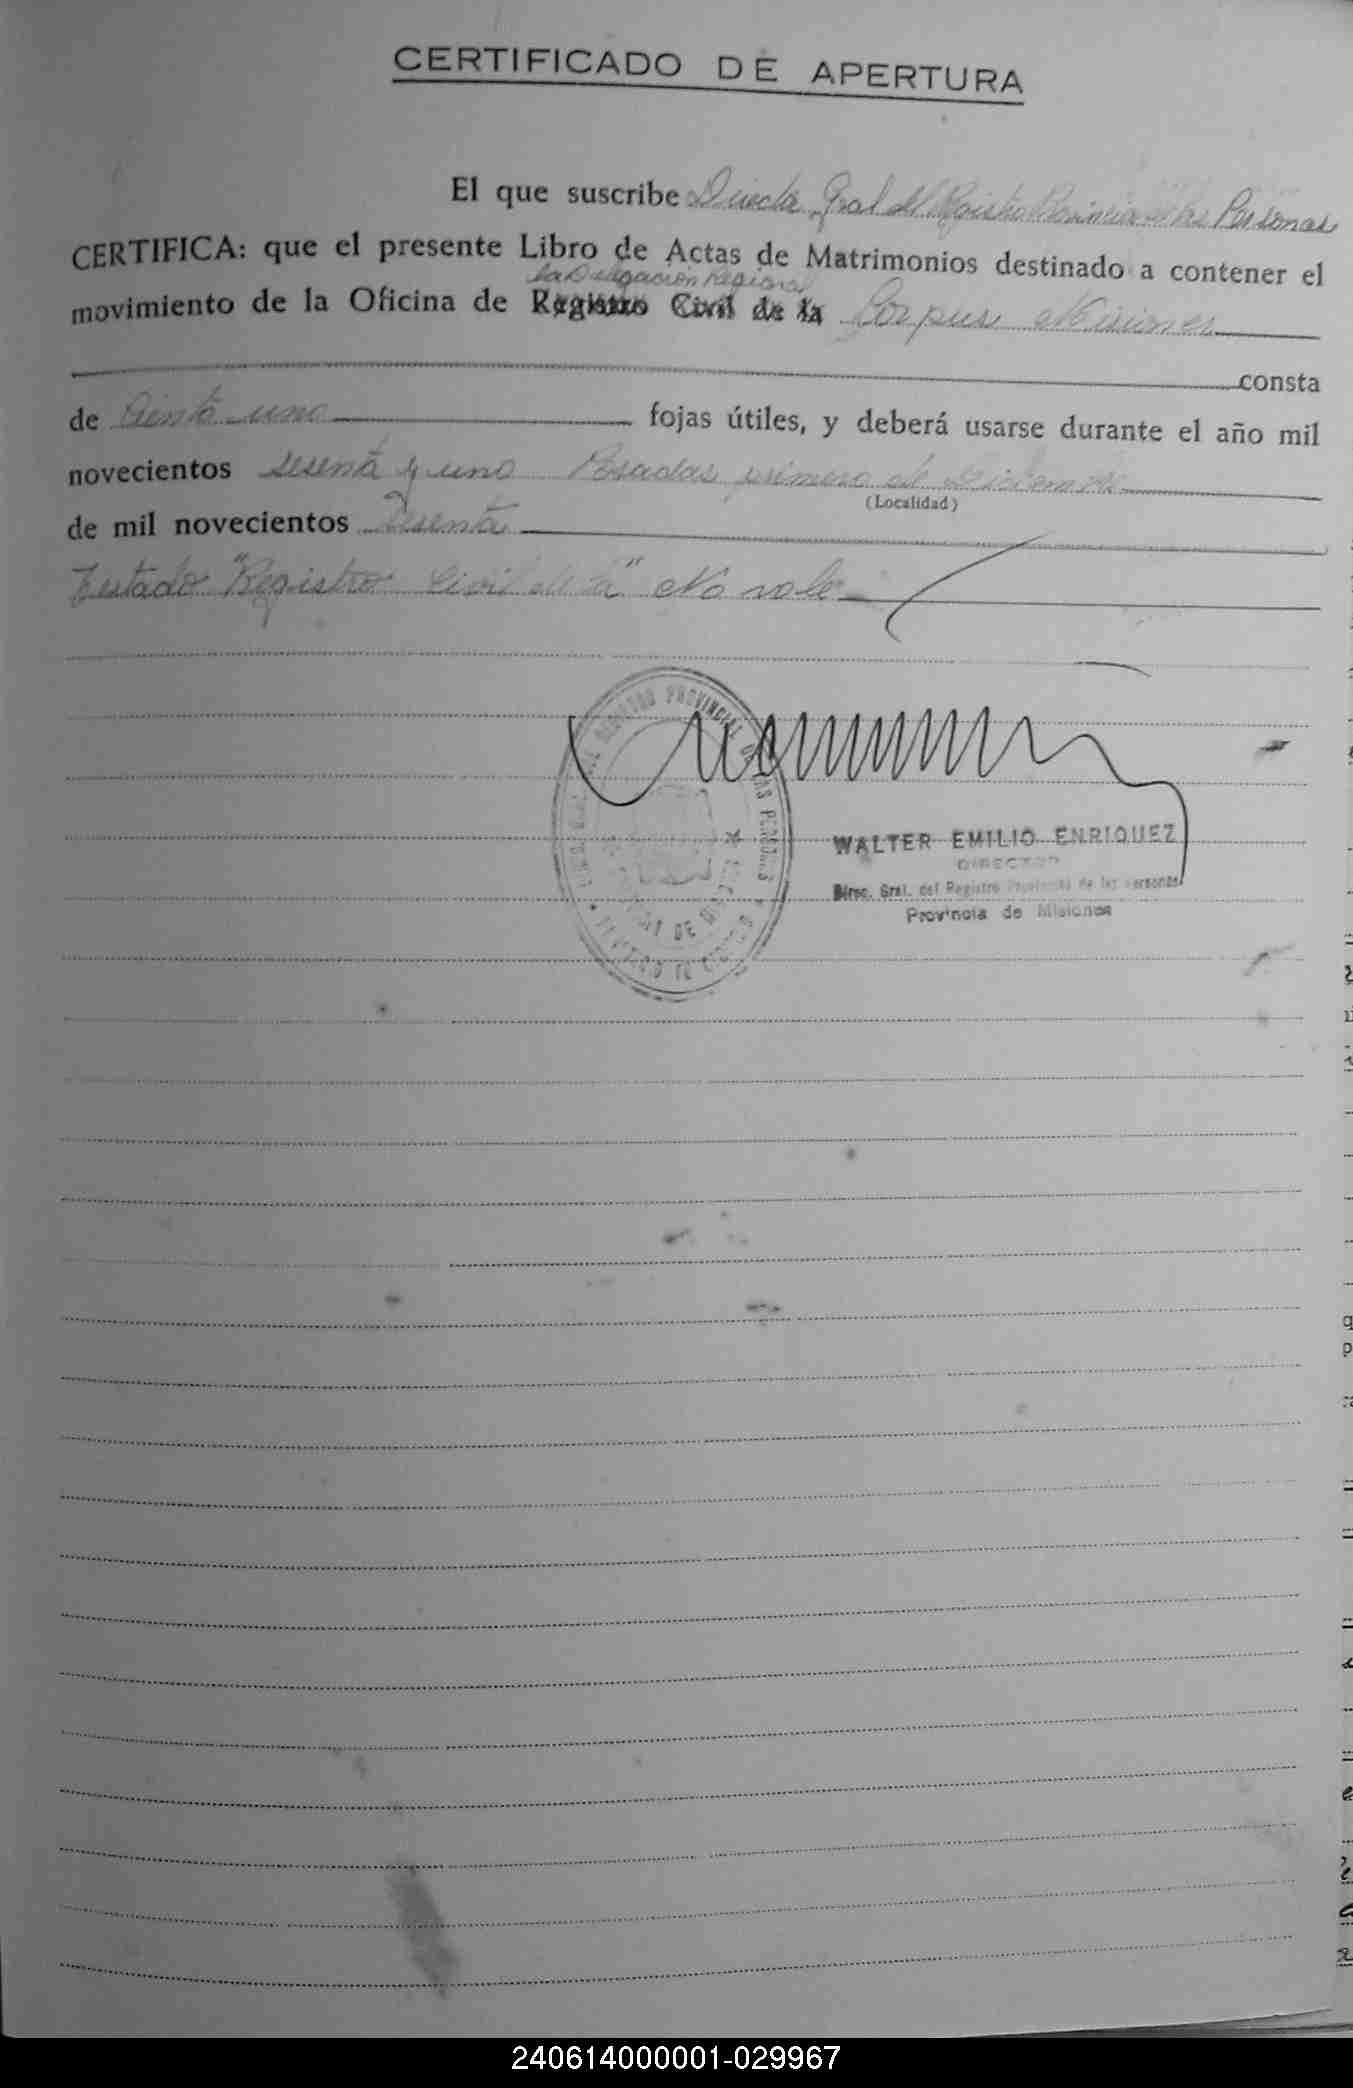 CERTIFICADO DE APERTURA
El que suscribe Director Gral del Registro Provincial de las Personas
CERTIFICA: que el presente Libro de Actas de Matrimonios destinado a contener el
la Delegación Regional
movimiento de la Oficina de Registro Civil de la Corpus Misiones
consta
de Ciento uno fojas útiles, y deberá usarse durante el año mil
novecientos sesenta y uno Posadas primero de Diciembre
(Localidad)
de mil novecientos Sesenta
Testado "Registro Civil de la" No vale
REGISTRO PROVINCIAL DE LAS PERSONAS
WALTER EMILIO ENRIQUEZ
DIRECTOR
Direc. Gral. del Registro Provincial de las Personas
Provincia de Misiones
240614000001-029967